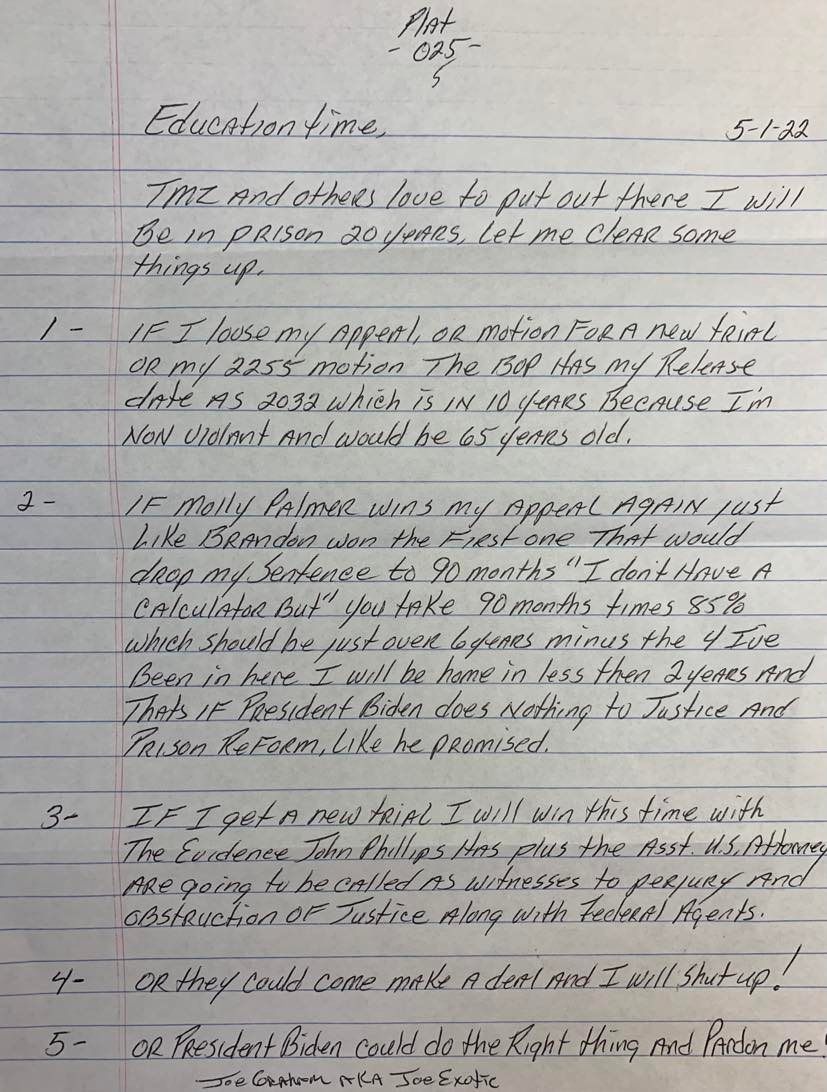 Plat
- 025 -
5
Education time, 5-1-22
TMZ And others love to put out there I will
Be in prison 20 years, Let me clear some
things up.
1 - IF I loose my Appeal, or motion For A new trial
OR my 2255 motion The BOP HAS my Release
date AS 2032 which is IN 10 years Because I'm
NON Violant And would be 65 years old.
2 - IF Molly Palmer wins my Appeal Again just
Like Brandon won the First one That would
drop my Sentence to 90 months "I don't Have A
Calculator But" you take 90 months times 85%
which should be just over 6 years minus the 4 I've
Been in here I will be home in less then 2 years And
Thats IF President Biden does Nothing to Justice And
Prison Reform, Like he promised.
3- IF I get A new trial I will win this time with
The Evidence John Phillips Has plus the Asst. U.S. Attorney
Are going to be called As witnesses to perjury And
Obstruction OF Justice Along with Federal Agents.
4- OR they could come make A deal And I will Shut up!
5- OR President Biden could do the Right thing And Pardon me!
Joe Graham AKA Joe Exotic